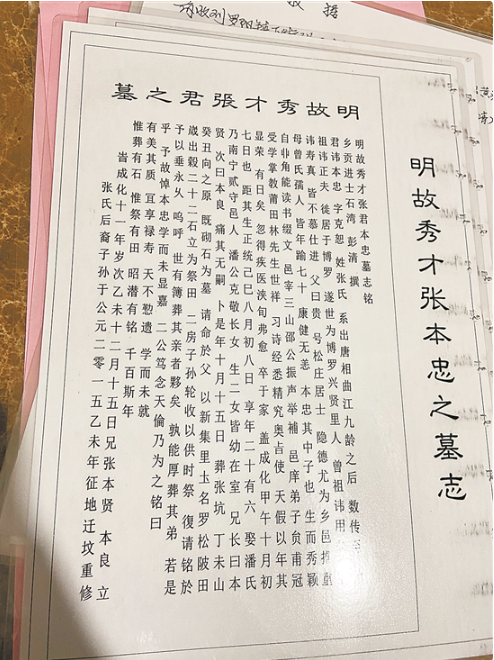 明故秀才張君之墓
明故秀才张君本忠墓志铭
乡贡进士石湾 彭清 撰
君讳本忠 字克恕 姓张氏 系出唐相曲江九龄之后 数传
祖讳正夫 徙居于博罗 遂世为博罗兴贤里人 曾祖讳用
讳寿真 皆不慕仕进 父曰贵 号松庄居士 隐德尤为乡邑推重
母曾氏孺人 皆年踰七十 康健无恙 本忠其中子也 生而秀颖
自丱角能读书缀文 邑宰三山邵公振声举补 邑庠弟子贠甫冠
受学掌教莆田林先生世祥 习诗经悉精究奥旨使 天假以年其
显荣 有日矣 忽得疾医浃旬弗愈 卒于家 盖成化甲午十月初
七日也 距其生正统己巳八月初八日 享年二十有六 娶潘氏
乃南宁贰守邑人 潘公克敬长女 生二女皆幼在室 兄长曰本
贤 次曰本良 痛其无嗣 卜是年十月十五日 葬张坑 丁未山
癸丑向之原 既砌石为墓 请命於父 以新集里圡名罗松陂田
歲出穀二十二石立为祭田 二房子孙轮收以供时祭 復请铭於
予以垂永乆 呜呼 世有簿葬其亲者夥矣 孰能厚葬其弟 若是
乎 予故悼本忠学而未显嘉 二公笃念天倫乃为之铭曰
有美其质 宜享禄寿 天不憗遗 学而未就
惟葬有石 惟祭有田 昭潜有铭 千百斯年
旹成化十一年岁次乙未十二月十五日兄张本贤 本良 立
张氏后裔子孙于公元二零一五乙未年征地迁坟重修
明故秀才张本忠之墓志